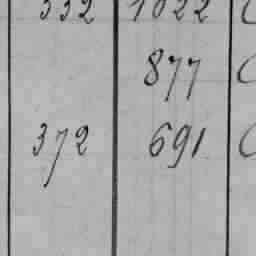 332 1022
877
372 691